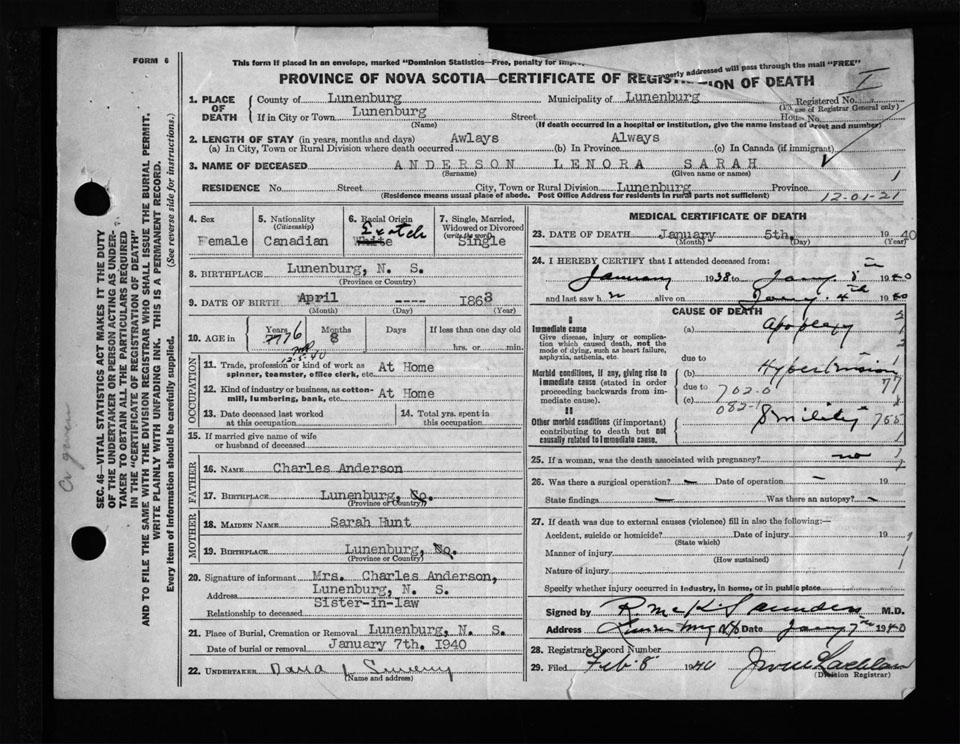 FORM 6
This form if placed in an envelope, marked "Dominion Statistics—Free, penalty for
perly addressed will pass through the mail "FREE"
PROVINCE OF NOVA SCOTIA—CERTIFICATE OF REGIS ON OF DEATH
I
1. PLACE OF DEATH County of Lunenburg Municipality of Lunenburg Registered No.
(For use of Registrar General only)
If in City or Town Lunenburg Street House No.
(Name) (If death occurred in a hospital or institution, give the name instead of street and number)
2. LENGTH OF STAY (in years, months and days)
(a) In City, Town or Rural Division where death occurred Awlays (b) In Province Always (c) In Canada (if immigrant)
3. NAME OF DECEASED ANDERSON LENORA SARAH
(Surname) (Given name or names)
RESIDENCE No. Street City, Town or Rural Division Lunenburg Province
(Residence means usual place of abode. Post Office Address for residents in rural parts not sufficient)
12-01-21
4. Sex Female
5. Nationality (Citizenship) Canadian
6. Racial Origin White
7. Single, Married, Widowed or Divorced (write the word) Single
8. BIRTHPLACE Lunenburg, N. S.
(Province or Country)
9. DATE OF BIRTH April ---- 1863
(Month) (Day) (Year)
10. AGE in Years 76 Months 8 Days If less than one day old
hrs. or min.
12.5.40
OCCUPATION
11. Trade, profession or kind of work as spinner, teamster, office clerk, etc. At Home
12. Kind of industry or business, as cotton-mill, lumbering, bank, etc. At Home
13. Date deceased last worked at this occupation
14. Total yrs. spent in this occupation
15. If married give name of wife or husband of deceased
FATHER
16. NAME Charles Anderson
17. BIRTHPLACE Lunenburg, Co.
(Province or Country)
MOTHER
18. MAIDEN NAME Sarah Hunt
19. BIRTHPLACE Lunenburg,
(Province or Country)
20. Signature of informant Mrs. Charles Anderson,
Address Lunenburg, N. S.
Relationship to deceased Sister-in-law
21. Place of Burial, Cremation or Removal Lunenburg, N. S.
Date of burial or removal January 7th. 1940
22. UNDERTAKER
(Name and address)
MEDICAL CERTIFICATE OF DEATH
23. DATE OF DEATH January 5th. 1940
(Month) (Day) (Year)
24. I HEREBY CERTIFY that I attended deceased from:
January 1938 to Jany. 5th 1940
and last saw h er alive on Jany. 4th 1940
CAUSE OF DEATH
I
Immediate cause (a) Apoplexy
Give disease, injury or complication which caused death, not the mode of dying, such as heart failure, asphyxia, asthenia, etc.
due to
Morbid conditions, if any, giving rise to immediate cause (stated in order proceeding backwards from immediate cause). (b) Hypertension
due to
(c)
702-0
77
II
Other morbid conditions (if important) contributing to death but not causally related to immediate cause. Senility
765
25. If a woman, was the death associated with pregnancy? no
26. Was there a surgical operation? — Date of operation — 19
State findings Was there an autopsy? —
27. If death was due to external causes (violence) fill in also the following:—
Accident, suicide or homicide? Date of injury 19
(State which)
Manner of injury
(How sustained)
Nature of injury
Specify whether injury occurred in industry, in home, or in public place
Signed by R. McK. Saunders M.D.
Address Date Jany 7th 1940
28. Registrar's Record Number
29. Filed Feb. 8 1940
(Division Registrar)
SEC. 46—VITAL STATISTICS ACT MAKES IT THE DUTY
OF THE UNDERTAKER OR PERSON ACTING AS UNDERTAKER
TO OBTAIN ALL THE PARTICULARS REQUIRED
IN THE "CERTIFICATE OF REGISTRATION OF DEATH"
AND TO FILE THE SAME WITH THE DIVISION REGISTRAR WHO SHALL ISSUE THE BURIAL PERMIT.
WRITE PLAINLY WITH UNFADING INK. THIS IS A PERMANENT RECORD.
Every item of information should be carefully supplied. (See reverse side for instructions.)